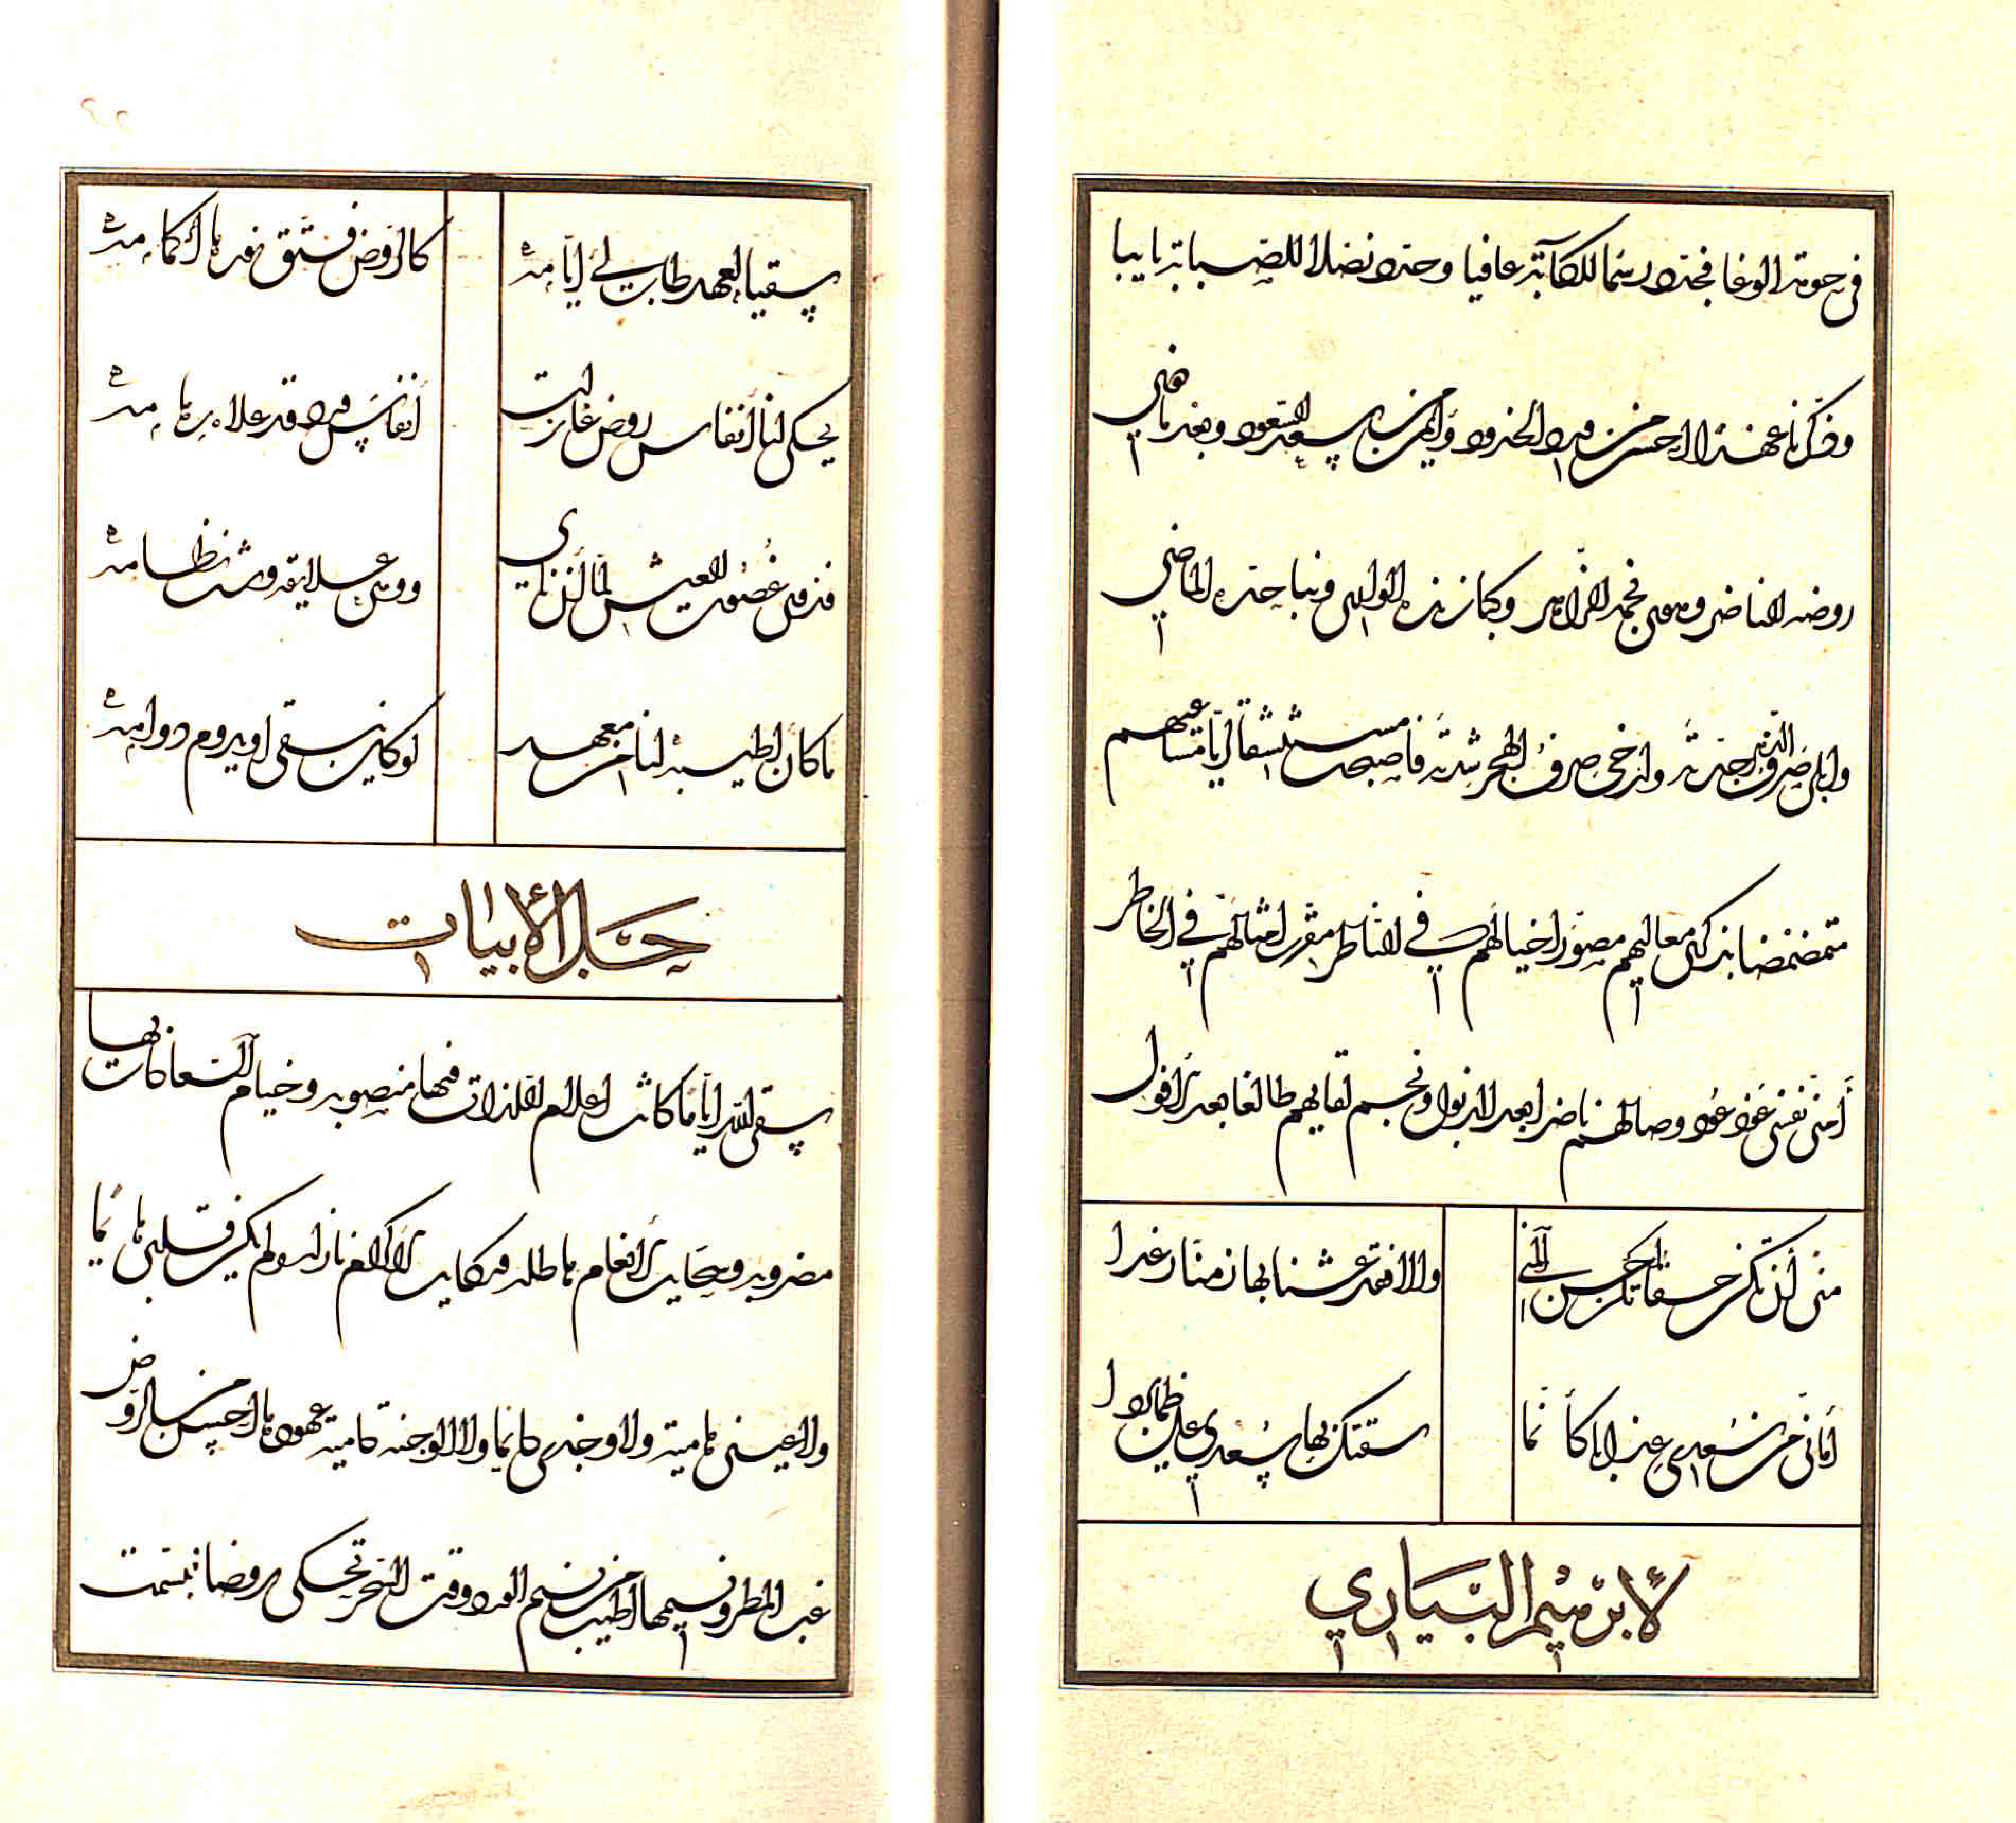 في حومة الوغا فجدد رسما للكآبة عافيا وحدد نضلا للصبابة نابيا
وذكرنا عهدا احسن من ورد الخدود وايمن من سعد السعود وبعد ما هي
روضه الناضر وهوى نجمه الزاهر وكبا زنده الواري ونبا حده الماضي
وابلى صروف الزمن جدته وارخى صرف الهجر شدته فاصبحت مستنشقا ريا نسائمهم
متمضمضا بذكر معاليهم مصورا خيالهم في الناظر مقررا مثالهم في الخاطر
أمني نفسي عود عود وصالهم ناضرا بعد الذبول ونجم لقايهم طالعا بعد الافول
منى إن تكن حقا تكن احسن المنى والا فقد عشنا بها زمنا رغدا
أماني من سعدى عذابا كأنما سقتك بها سعدى على ظما بردا
لابرهيم البياري
سقيا لعهد طاب لي أيامه كالروض فتق نوره اكمامه
يحكي لنا أنفاس روض غازلت أنفاس ورد قد علاه رهامه
فذوى غصون العيش لما أن زهاى ووهى علايقه وشت نظامه
ما كان اطيبه لنا من معهد لو كان يبقى او يروم دوامه
حل الأبيات
سقى الله اياما كانت اعلام اللذات فيها منصوبه وخيام السعادات بها
مضروبه وسحايب الانعام هاطله وركايب الاكرام نازله ولم يكن قلبي هايما
ولا عيني هامية ولا وجدي كايما ولا الوجنة دامية عهودها احسن من الروض
غب المطر ونسيمها اطيب من نسيم الورد وقت السحر تحكي روضا تبسمت